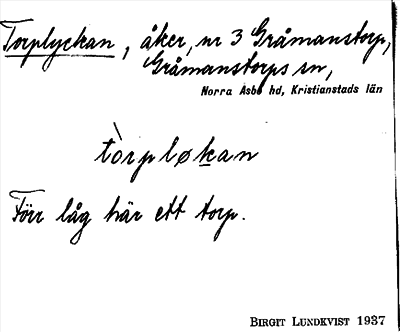 Torplyckan, åker, nr 3 Gråmanstorp,
Gråmanstorps sn,
Norra Åsbo hd, Kristianstads län
tòrpløkan
Förr låg här ett torp.
BIRGIT LUNDKVIST 1937